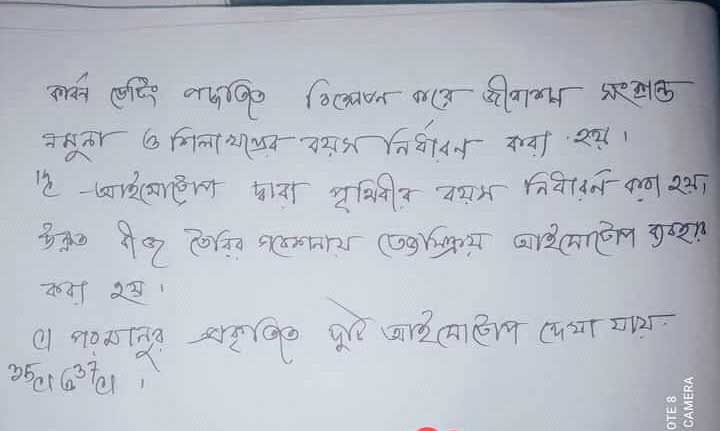 কার্বন ডেটিং পদ্ধতিতে বিশ্লেষন করে জীবাশ্ম সংক্রান্ত
নমুনা ও শিলাখন্ডের বয়স নির্ধারন করা হয়।
আইসোটোপ দ্বারা পৃথিবীর বয়স নির্ধারন করা হয়।
উন্নত বীজ তৈরির গবেষনায় তেজস্ক্রিয় আইসোটোপ ব্যবহার
করা হয়।
Cl পরমানুর প্রকৃতিতে দুটি আইসোটোপ দেখা যায়
³⁵Cl ও ³⁷Cl ।
OTE 8
CAMERA